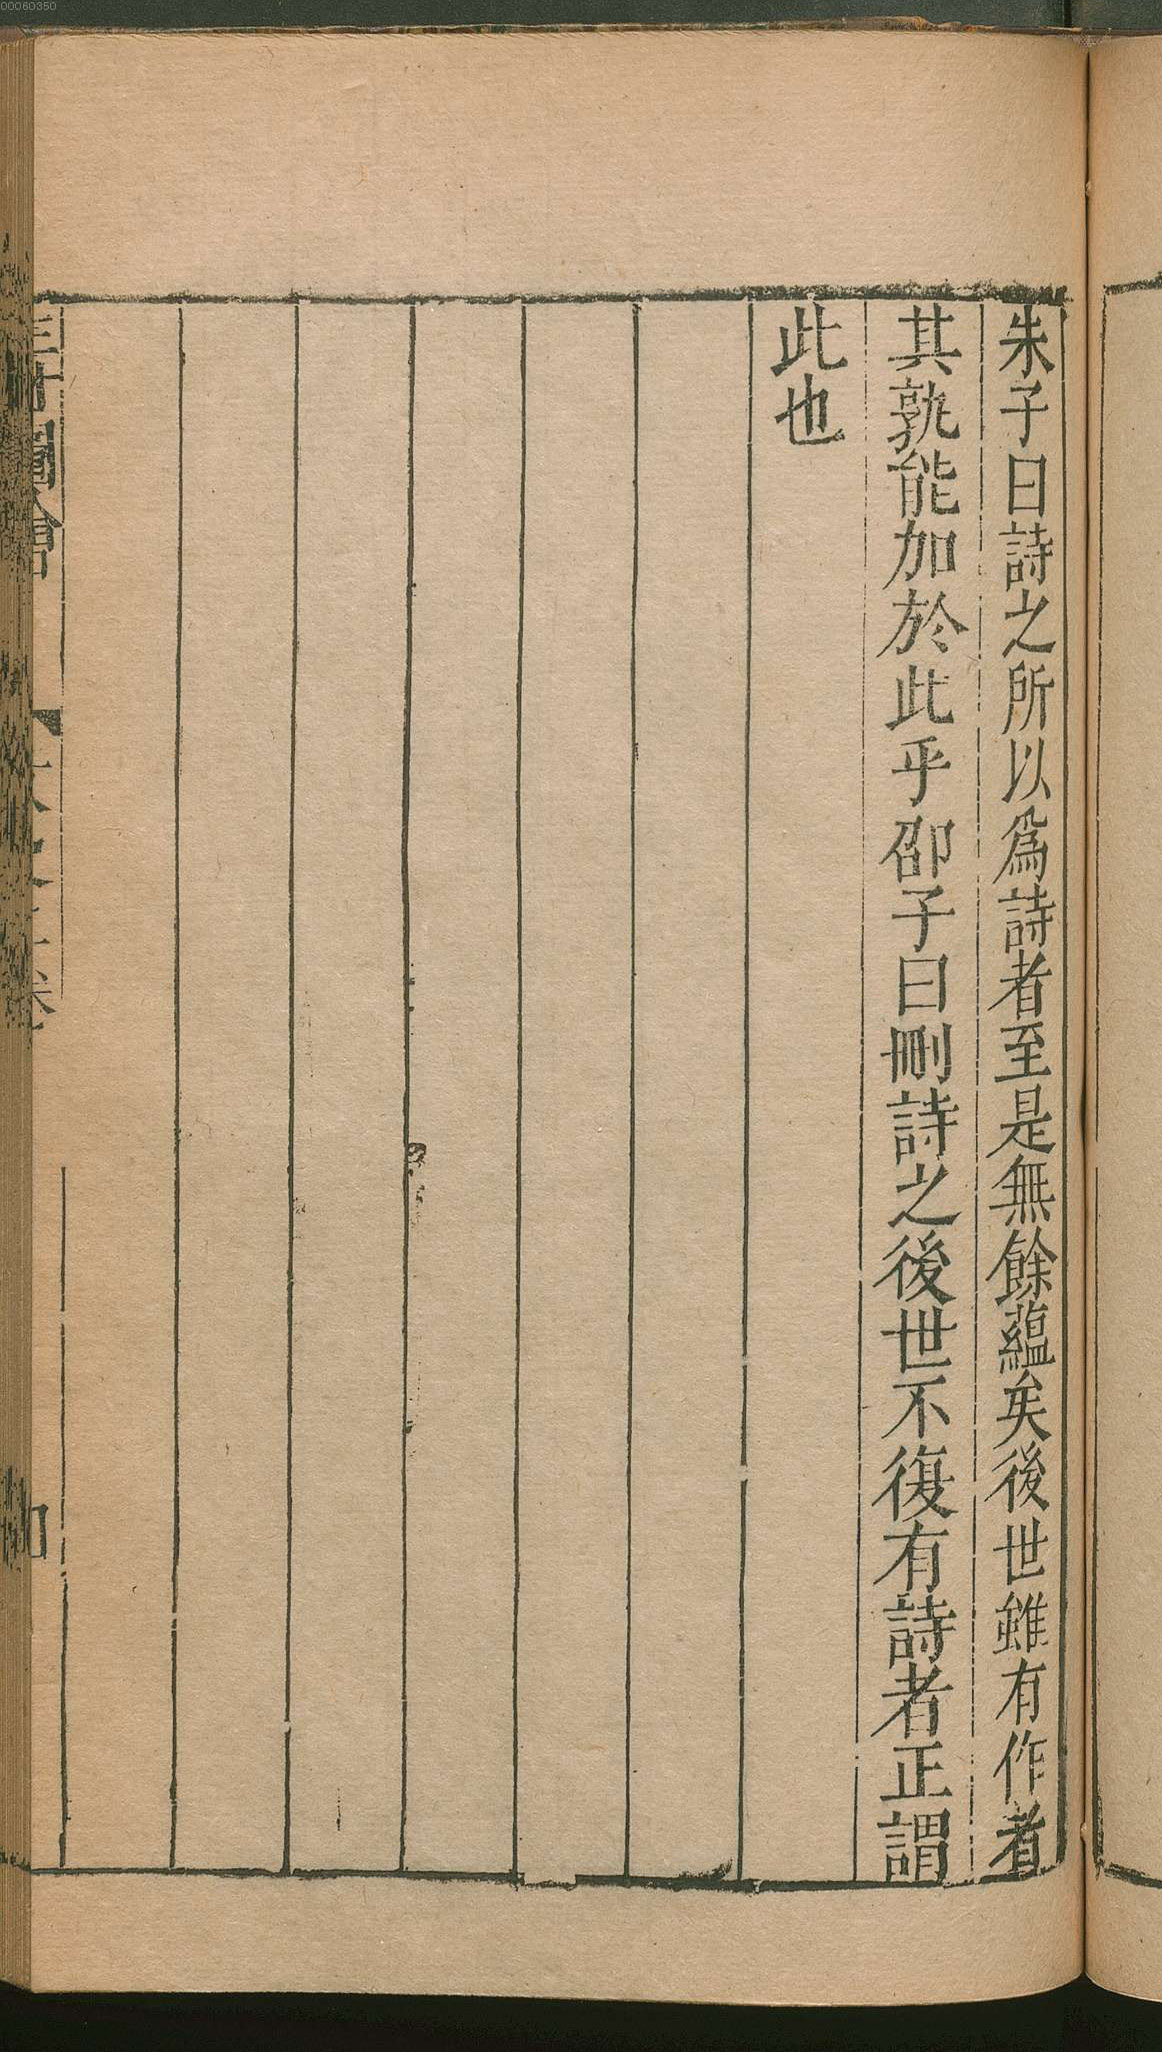 朱子曰詩之所以爲詩者至是無餘蘊矣後世雖有作者
其孰能加於此乎邵子曰刪詩之後世不復有詩者正謂
此也
三才圖會
00060350